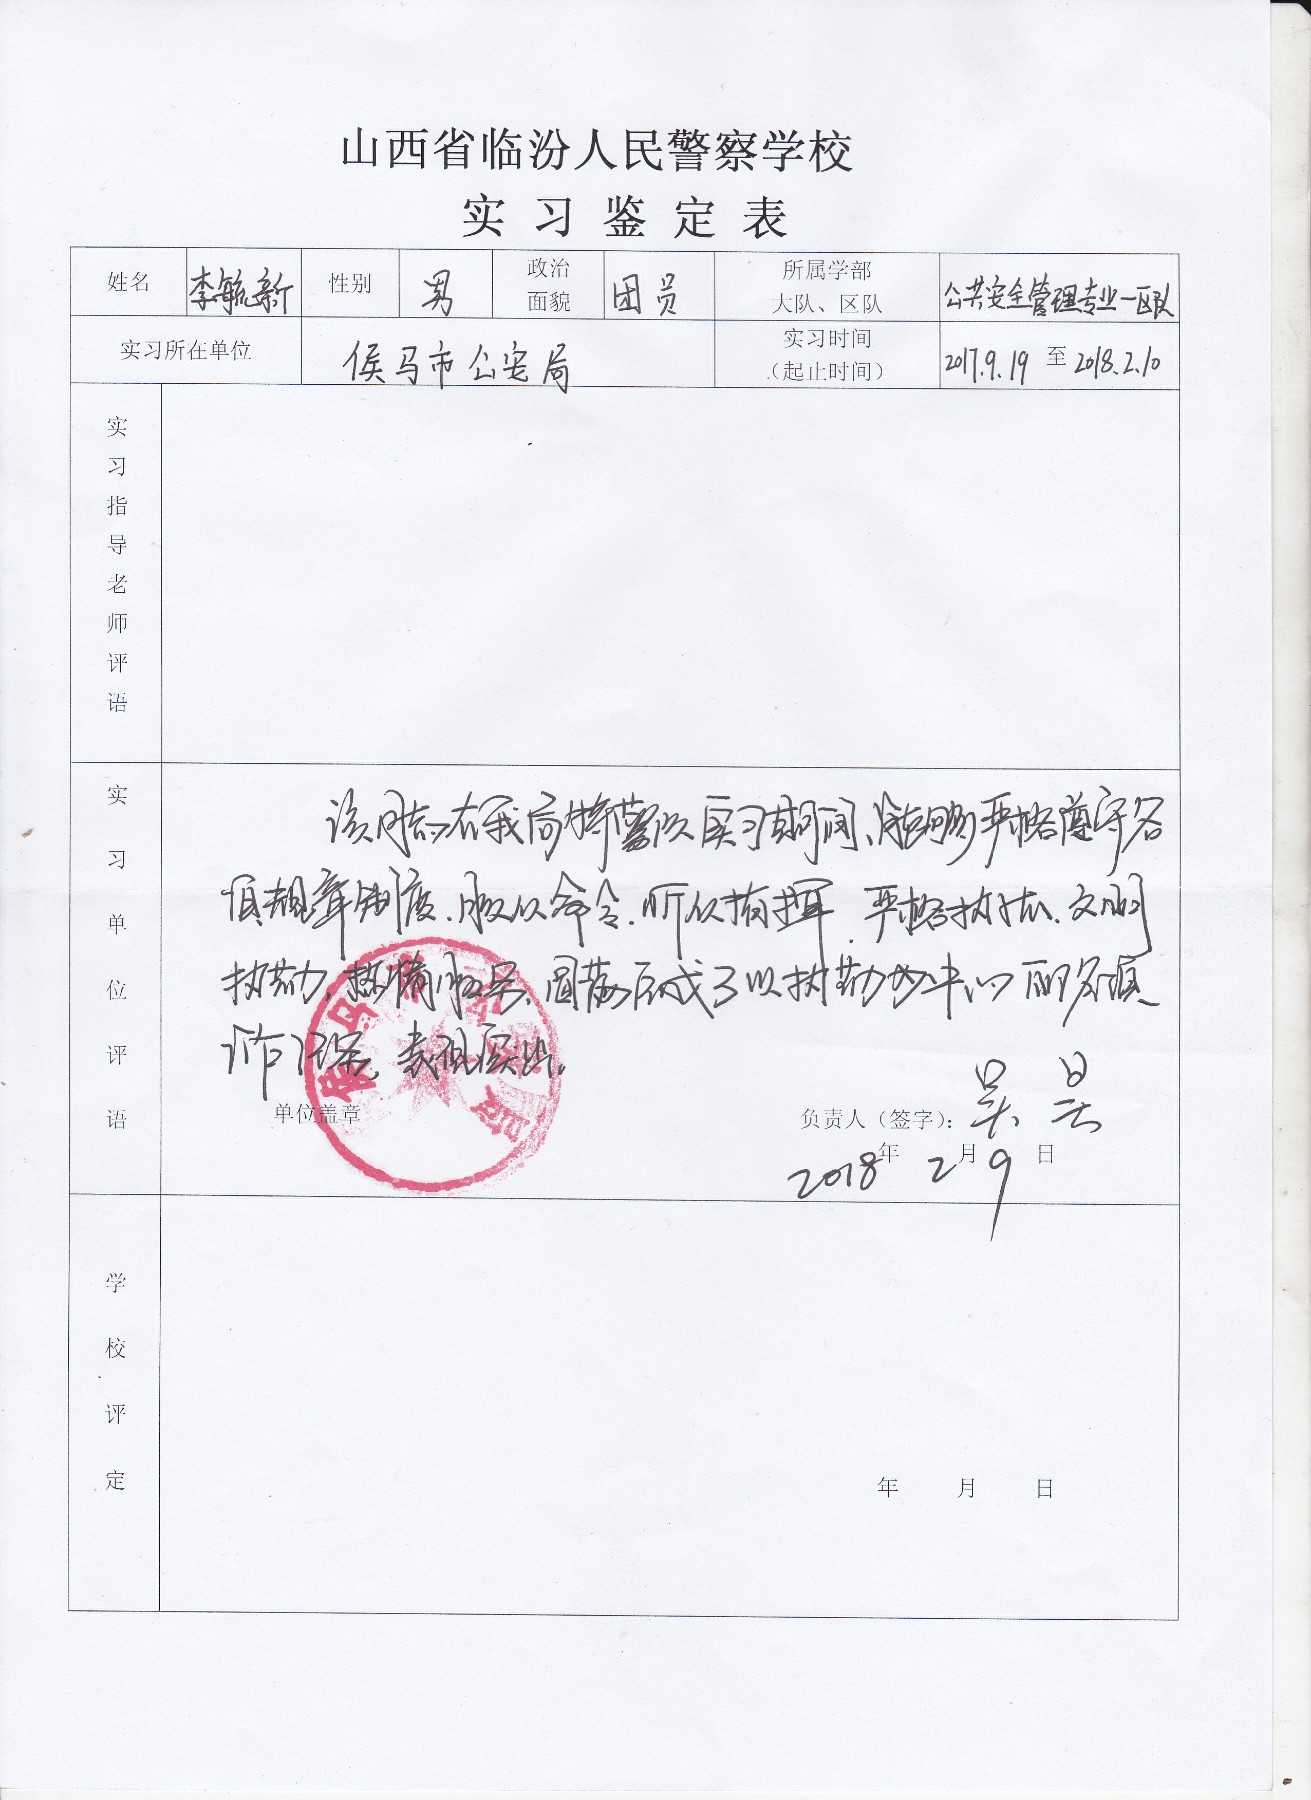 山西省临汾人民警察学校
实习鉴定表
姓名 李毓新 性别 男 政治面貌 团员 所属学部大队、区队 公共安全管理专业一区队
实习所在单位 侯马市公安局 实习时间（起止时间） 2017.9.19 至 2018.2.10
实习指导老师评语
实习单位评语
该同志在我局特警队实习期间、能够严格遵守各
项规章制度、服从命令、听从指挥、严格执法、文明
执勤、热情服务、圆满完成了以执勤为中心的各项
工作任务、表现突出。
单位盖章
负责人（签字）：吴昊
2018年2月9日
学校评定
年 月 日